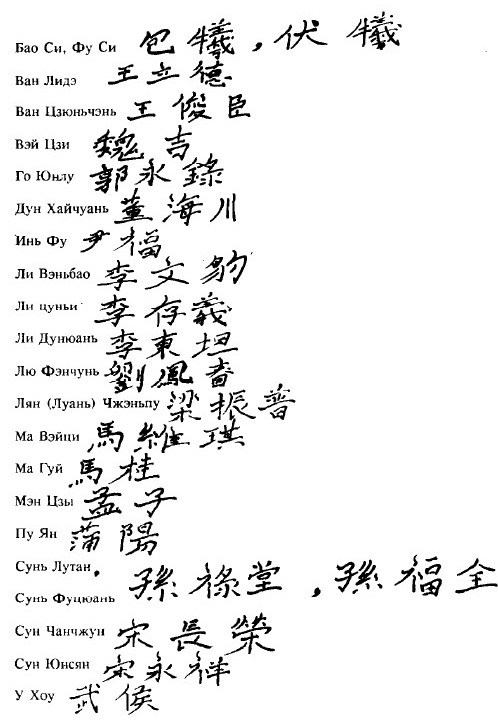 Бао Си, Фу Си 包犧,伏犧
Ван Лидэ 王立德
Ван Цзюньчэнь 王俊臣
Вэй Цзи 魏吉
Го Юнлу 郭永錄
Дун Хайчуань 董海川
Инь Фу 尹福
Ли Вэньбао 李文豹
Ли цуньи 李存義
Ли Дунюань 李東垣
Лю Фэнчунь 劉鳳春
Лян (Луань) Чжэньпу 梁振普
Ма Вэйци 馬維琪
Ма Гуй 馬桂
Мэн Цзы 孟子
Пу Ян 蒲陽
Сунь Лутан, 孫祿堂,孫福全
Сунь Фуцюань
Сун Чанчжун 宋長榮
Сун Юнсян 宋永祥
У Хоу 武侯